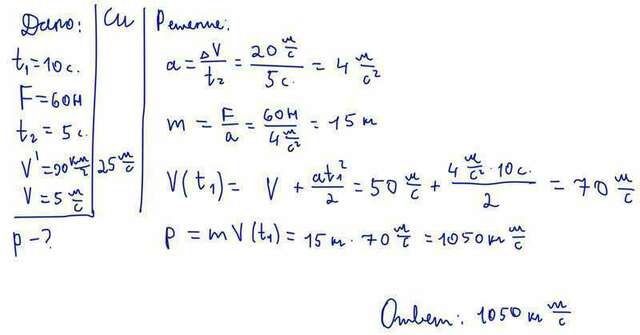 Дано: СИ Решение:
t₁=10с.
F=60Н
t₂=5с.
V'=90 км/ч 25 м/с
V=5 м/с
p-?
a = ΔV/t₂ = 20 м/с / 5с. = 4 м/с²
m = F/a = 60Н / 4 м/с² = 15 кг
V(t₁) = V + at₁²/2 = 50 м/с + 4 м/с² · 10с. / 2 = 70 м/с
p = mV(t₁) = 15 кг · 70 м/с = 1050 кг м/с
Ответ: 1050 кг м/с